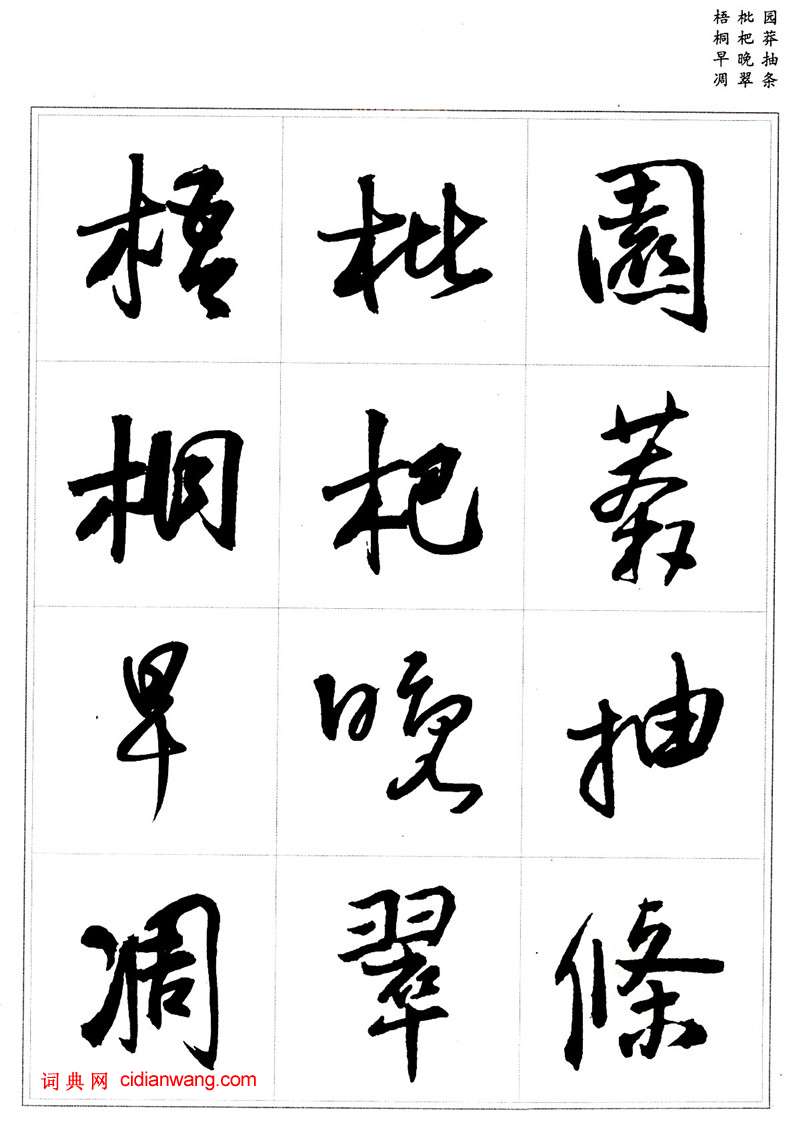 园莽抽条
枇杷晚翠
梧桐早凋
園莽抽條
枇杷晚翠
梧桐早凋
词典网 cidianwang.com